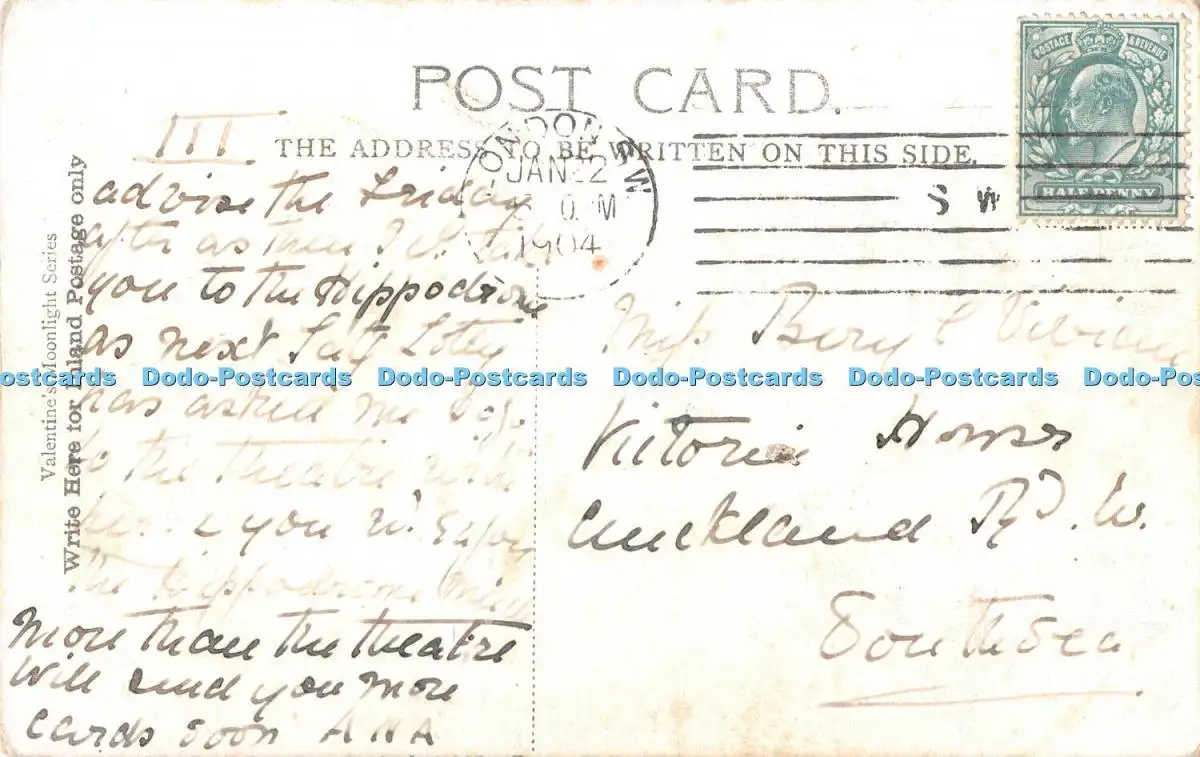 POST CARD.
THE ADDRESS TO BE WRITTEN ON THIS SIDE.
POSTAGE & REVENUE
HALF PENNY
LONDON S.W
JAN 22
M
1904
S W
Valentine's Moonlight Series
Write Here for Inland Postage only
III
advise the Friday
after as then I
you to the Hippodrome
as next Saty
has asked me to go
to the theatre with
her & you wd. enjoy
the Hippodrome
more than the theatre
Will send you more
cards soon A N A
Miss Beryl Vivian
Victoria House
Auckland Rd. W.
Southsea
Dodo-Postcards Dodo-Postcards Dodo-Postcards Dodo-Postcards Dodo-Postcards Dodo-Postcards